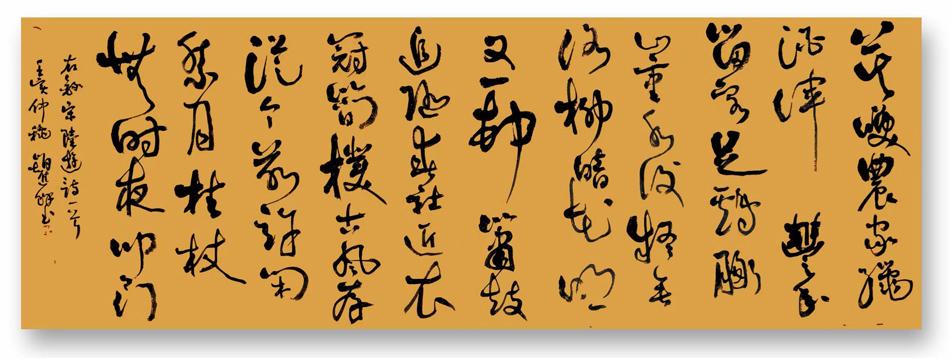 莫笑農家臘
酒渾豐年
留客足雞豚
山重水復疑無
路柳暗花明
又一邨簫鼓
追隨春社近衣
冠簡樸古風存
從今若許閑
乘月拄杖
無時夜叩門
右錄宋陸游詩一首
壬寅仲龝